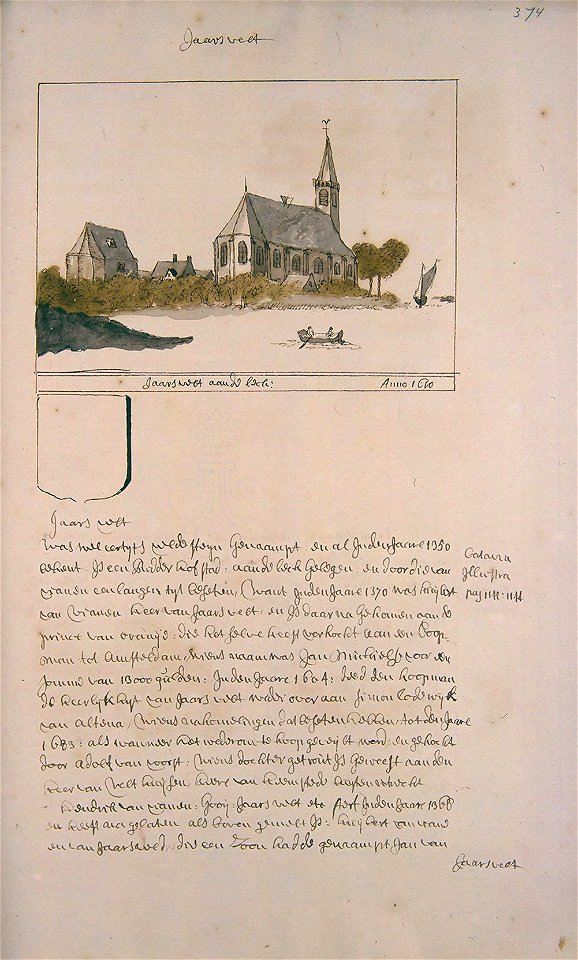 374
Jaarsvelt
Jaarsvelt aan de leck:
Anno 1610
Jaarsvelt
Was wel eertyts veldesteyn Genaampt: en al Inden Jaare 1350
bekent: Is een Ridder hofstad: aan de leck gelegen: en door die van
vianen een langen tyt beseten, Want Inden Jaare 1370 was huijbert
van vianen heer van Jaarsvelt, en Is daar na gekomen aan de
prince van oranje: die het selve heeft verkocht aan een Coop-
man tot Amsteldam, wiens naam was Jan Michielse voor een
somme van 13000 gulden: Inden Jaare 1604: deed den koopman
de heerlykhyt van Jaarsvelt weder over aan Simon lodewyk
van altena, wiens ankomelingen dat beseten hebben, tot den Jaare
1683: als wanneer het wederom te koop geveylt werd: en gekocht
door adolf van voorst: wiens dochter getrout Is Geweest aan den
heer van velthuijsen, heere van heemstede buijten utrecht
Hendrik van vianen: Gooij: Jaarsvelt etc sterf Inden Jaare 1368
en heeft na gelaten als boven gemelt Is: huijbert van
en van Jaarsveld, die een zoon hadde genaampt, Jan van
Jaarsvelt
Batavia
Illustra
pag